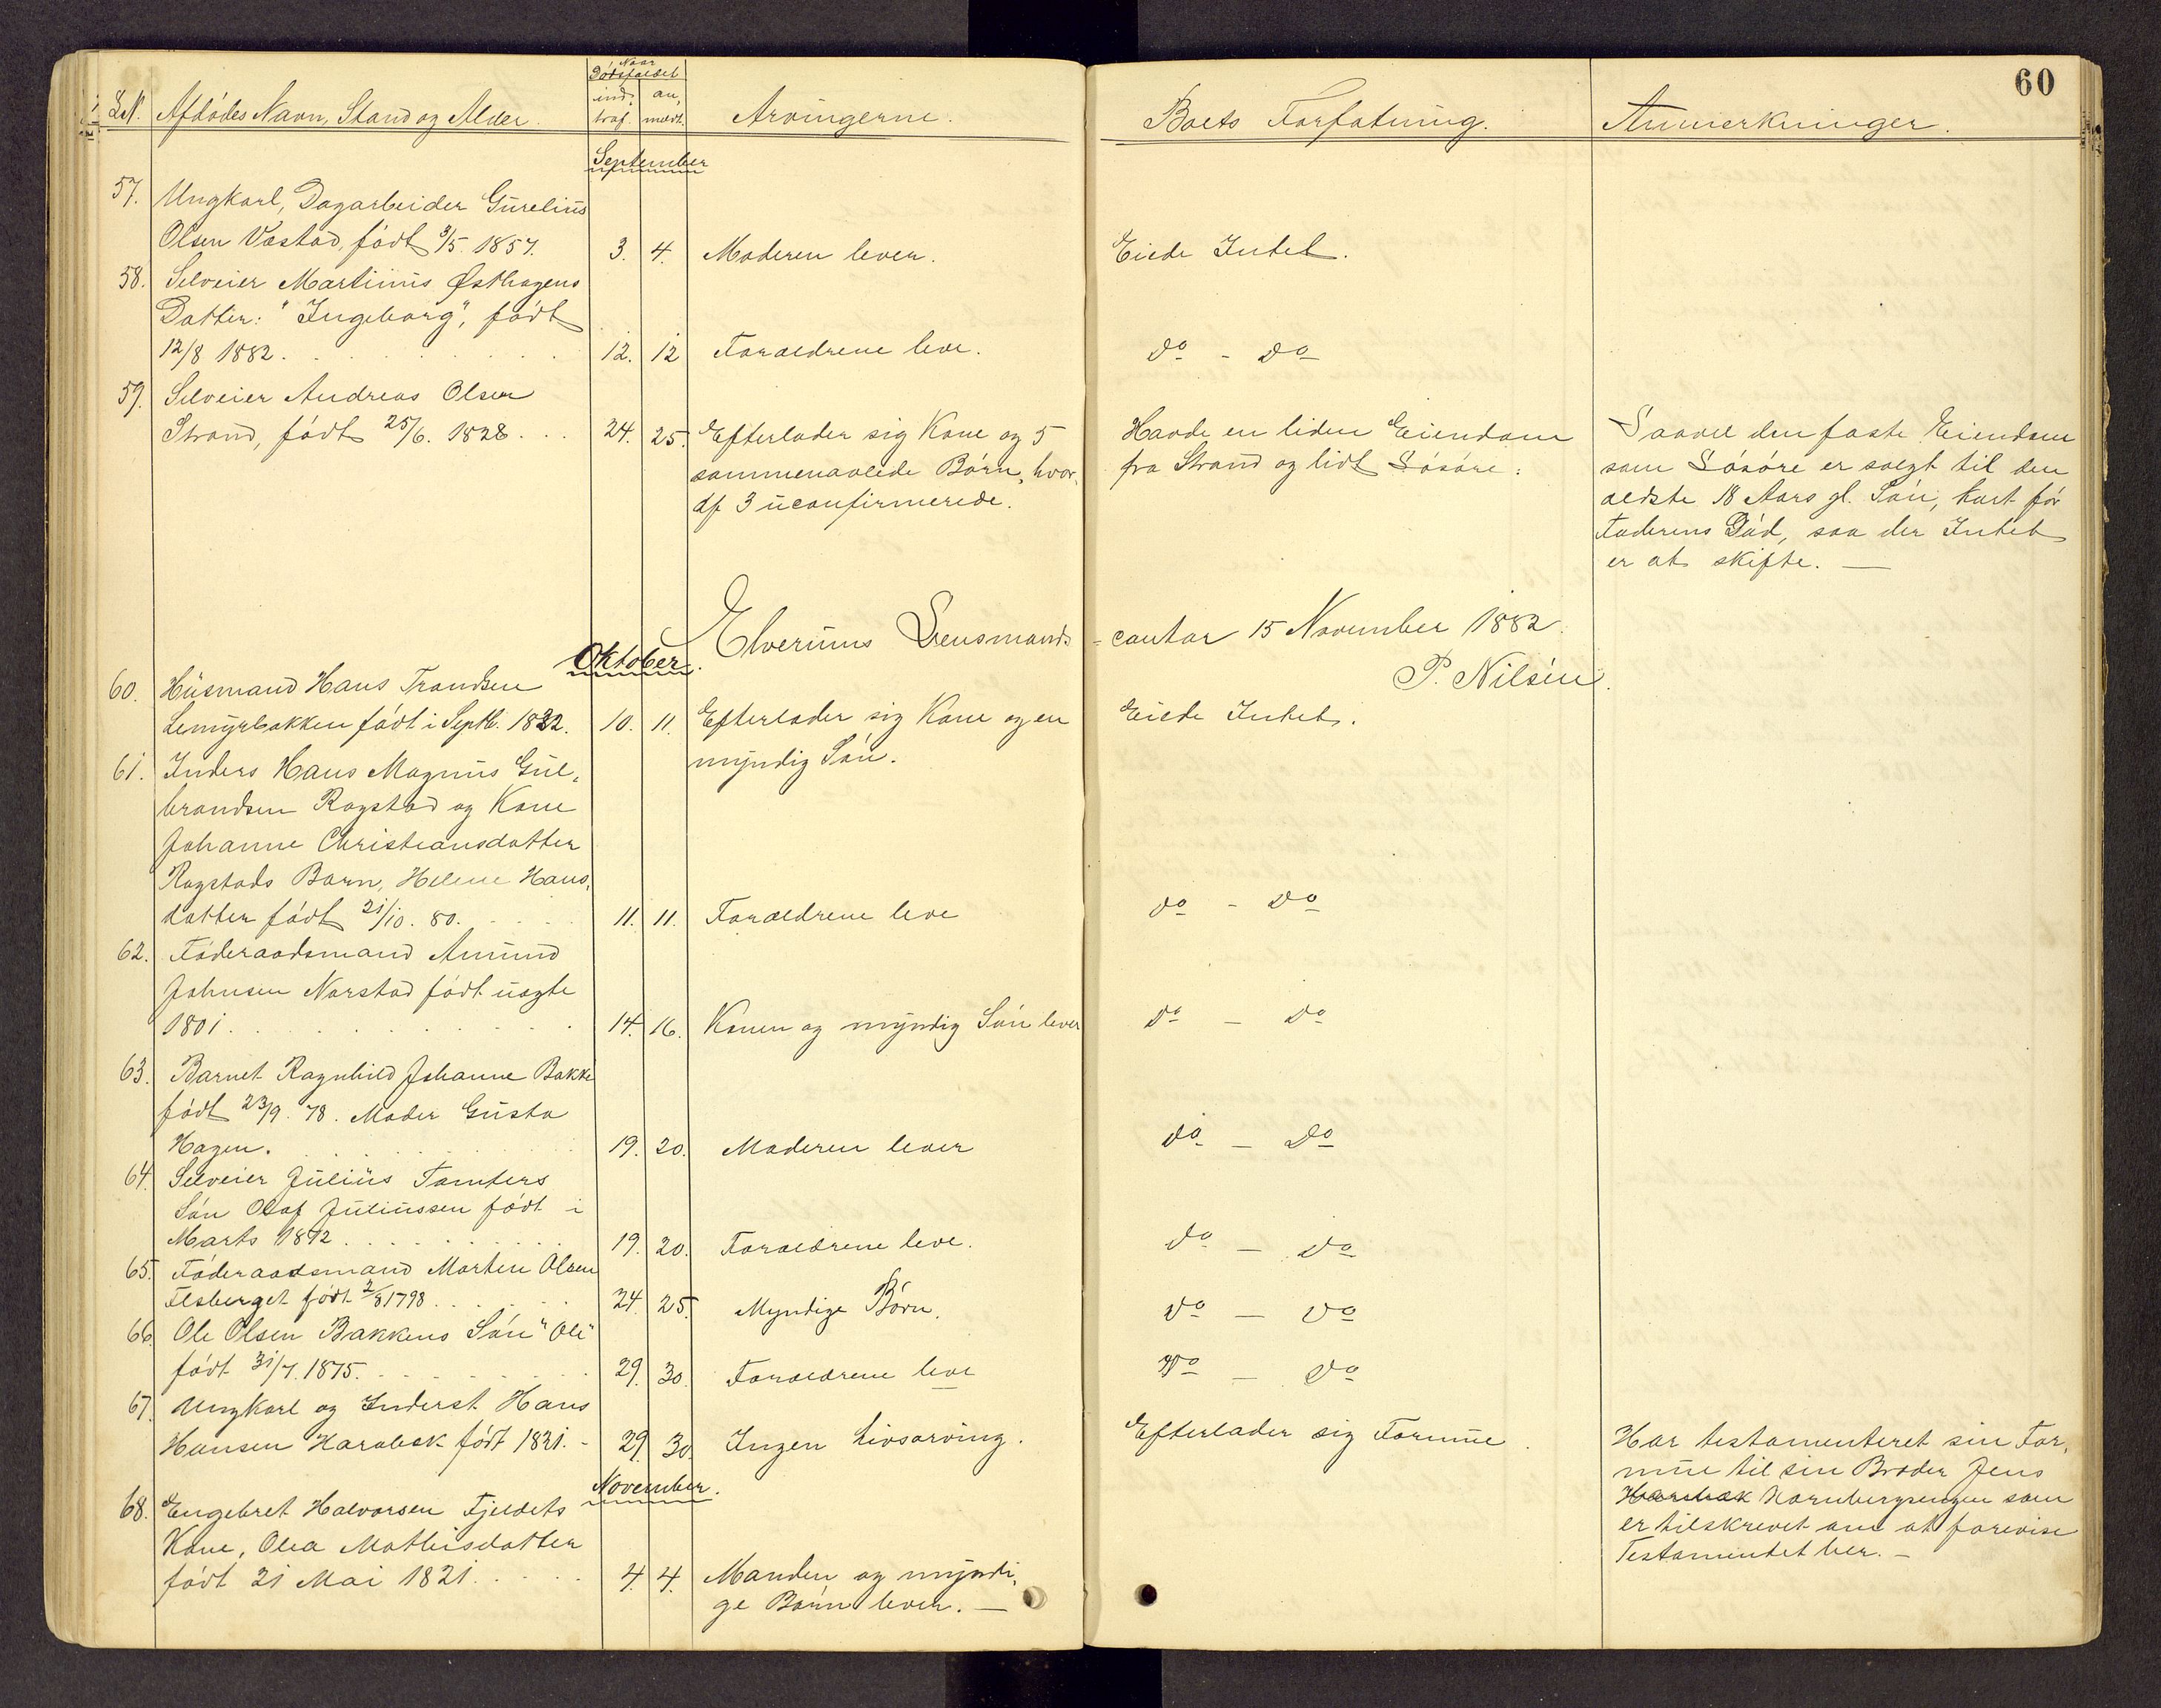 60
L.N. Afdødes Navn, Stand og Alder. Naar Dødsfaldet indtraf. anmeldt. Arvingerne. Boets Forfatning. Anmerkninger.
September
57. Ungkarl, Dagarbeider Gurelius
Olsen Vastad, født 3/5 1857. 3. 4. Moderen lever. Eiede Intet.
58. Selveier Martinus Østhagens
Datter: "Ingeborg", født
12/8 1882. 12. 12 Foraeldrene leve. Do - Do
59. Selveier Andreas Olsen
Strand, født 25/6. 1828 . . . 24. 25. Efterlader sig Kone og 5 Havde en liden Eiendom Saavel den faste Eiendom
sammenavlede Børn, hvor- fra Strand og lidt Løsøre: som Løsøre er solgt til den
af 3 uconfirmerede. aeldste 18 Aars gl. Søn, kort før
Faderens Død, saa der Intet
er at skifte. —
Elverums Lensmands-contor 15 November 1882.
P. Nilsen.
Oktober.
60. Husmand Hans Trondsen
Lemyrbakken født i Septb. 1822. 10. 11. Efterlader sig Kone og en Eiede Intet.
myndig Søn.
61. Inders Hans Magnus Gul-
brandsen Rogstad og Kone
Johanne Christiansdatter
Rogstads Barn, Helene Hans-
datter født 21/10. 80. 11. 11. Foraeldrene leve do - Do
62. Føderaadsmand Amund
Johnsen Norstad født uagte
1801. 14. 16. Konen og myndig Søn lever Do - Do
63. Barnet Ragnhild Johanne Bakke
født 23/9. 78. Moder Gusta
Hagen. 19. 20. Moderen lever do - Do
64. Selveier Julius Tomters
Søn Olaf Juliussen født i
Marts 1872 19. 20. Foraeldrene leve. Do - Do
65. Føderaadsmand Morten Olsen
Flsberget født 2/8 1798 24. 25. Myndige Børn. Do - Do
66. Ole Olsen Bakkens Søn "Ole"
født 31/7. 1875. 29. 30. Foraeldrene leve Do - Do
67. Ungkarl og Inderst Hans
Hansen Harabak født 1821. - 29. 30. Ingen Livsarving. Efterlader sig Formue. Har testamenteret sin For-
mue til sin Broder Jens
Harabak Hornbergsengen som
er tilskrevet om at forevise
Testamentet her. —
November.
68. Engebret Halvorsen Fjeldets
Kone, Olea Mathisdatter
født 21 Mai 1821. 4. 4. Manden og myndi-
ge Børn lever. —